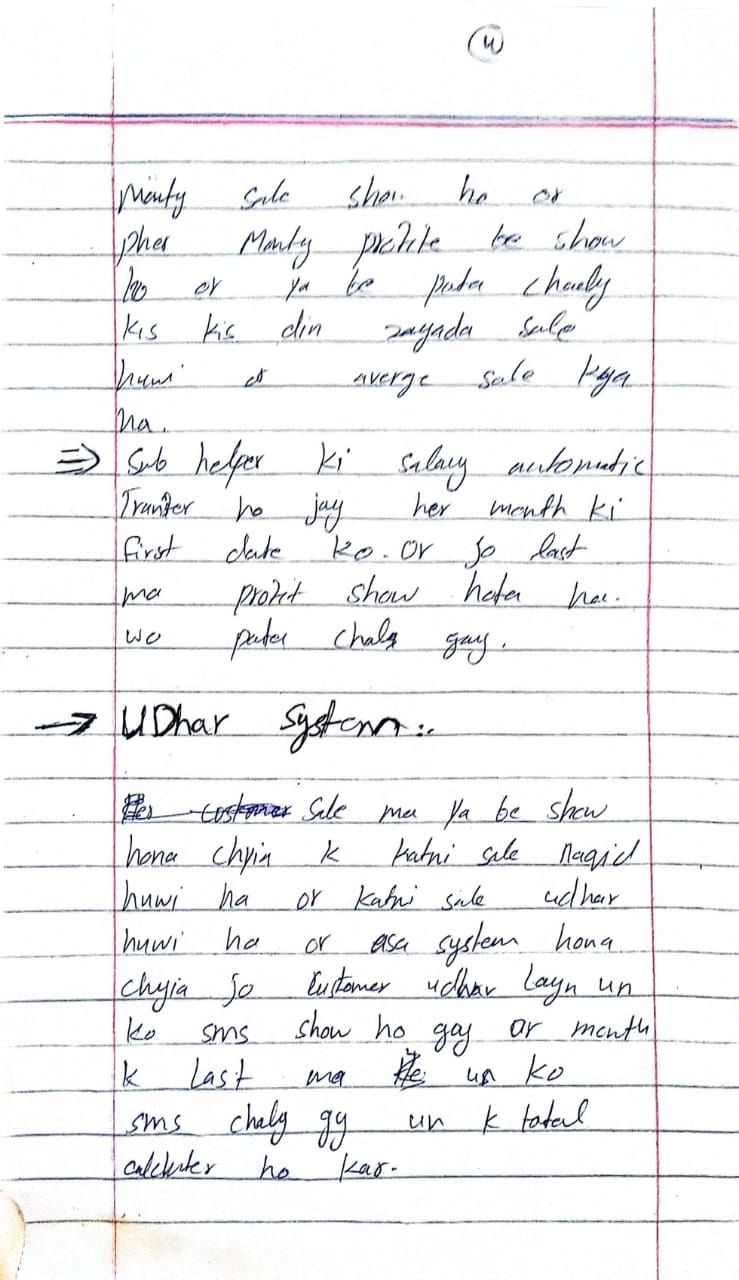 4
Monty sale show ho or
pher Monty profite be show
ho or ya be pata chaely
kis kis din zayada sale
huwi or averge sale kya
ha.
⇒ Sub helper ki salary automatic
Tranfer ho jay her month ki
first date ko. or jo last
ma profit show hota ha.
wo pata chala gay.
→ UDhar System:.
Sale ma ya be show
hona chyia k katni sale naqid
huwi ha or katni sale udhar
huwi ha or asa system hona
chyia jo Customer udhar Layn un
ko sms show ho gay or month
k Last ma un ko
sms chaly gy un k total
calcluter ho kar.